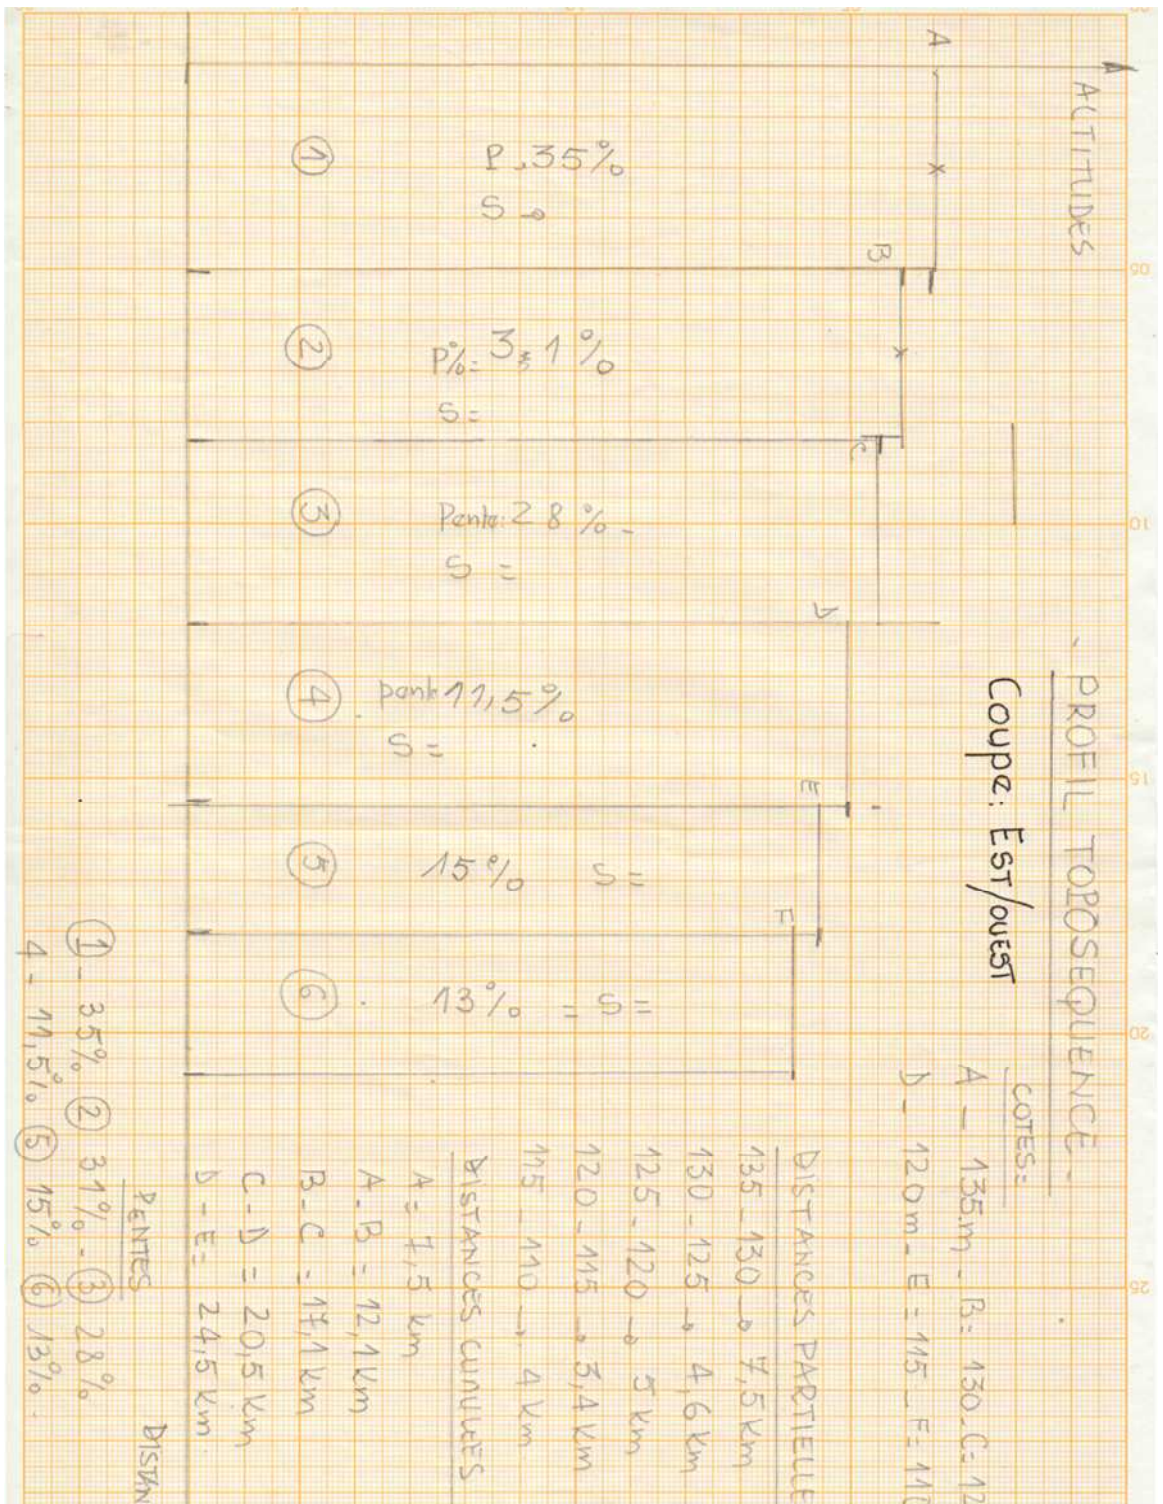 ALTITUDES
- PROFIL TOPOSEQUENCE -
Coupe: EST/OUEST
COTES:
A — 135.m - B = 130 - C = 12
D - 120m - E = 115 - F = 110
DISTANCES PARTIELLE
135 - 130 → 7,5 km
130 - 125 → 4,6 km
125 - 120 → 5 km
120 - 115 → 3,4 km
115 - 110 → 4 km
DISTANCES CUMULEES
A = 7,5 km
A - B = 12,1 km
B - C = 17,1 km
C - D = 20,5 km
D - E = 24,5 km
PENTES
① - 35% ② 31% - ③ 28%
4 - 11,5% ⑤ 15% ⑥ 13% .
DISTAN
A
B
C
D
E
F
① P. 35%
S →
② P% = 3,1 %
S =
③ Pente: 28 % -
S =
④ pente 11,5%
S =
⑤ 15% S =
⑥ 13% = S =
05
10
15
20
25